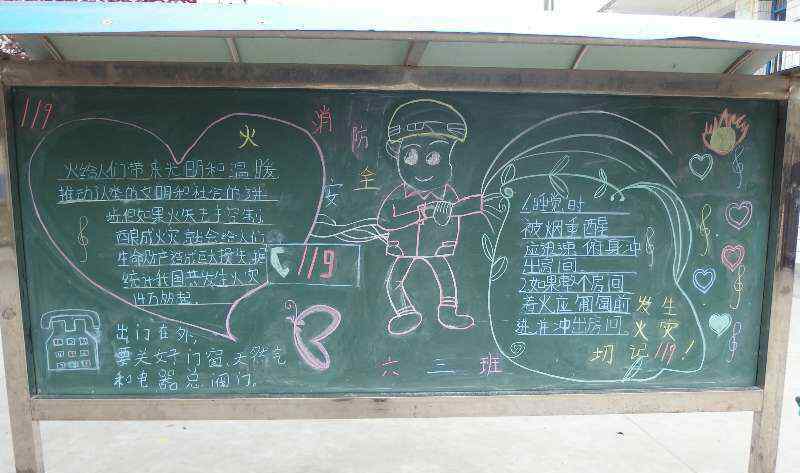 119
火
消防
安全
火给人们带来光明和温暖
推动人类的文明和社会的进
步但如果火失去控制
酿成火灾就会给人们
生命财产造成巨大损失据
统计我国共发生火灾
14万的起.
119
出门在外,
要关好门窗,天然气
和电器总阀门.
1.睡觉时
被烟熏醒
应迅速俯身冲
出房间.
2.如果整个房间
着火应匍匐前
进并冲出房间.
发生
火灾
切记119!
六三班